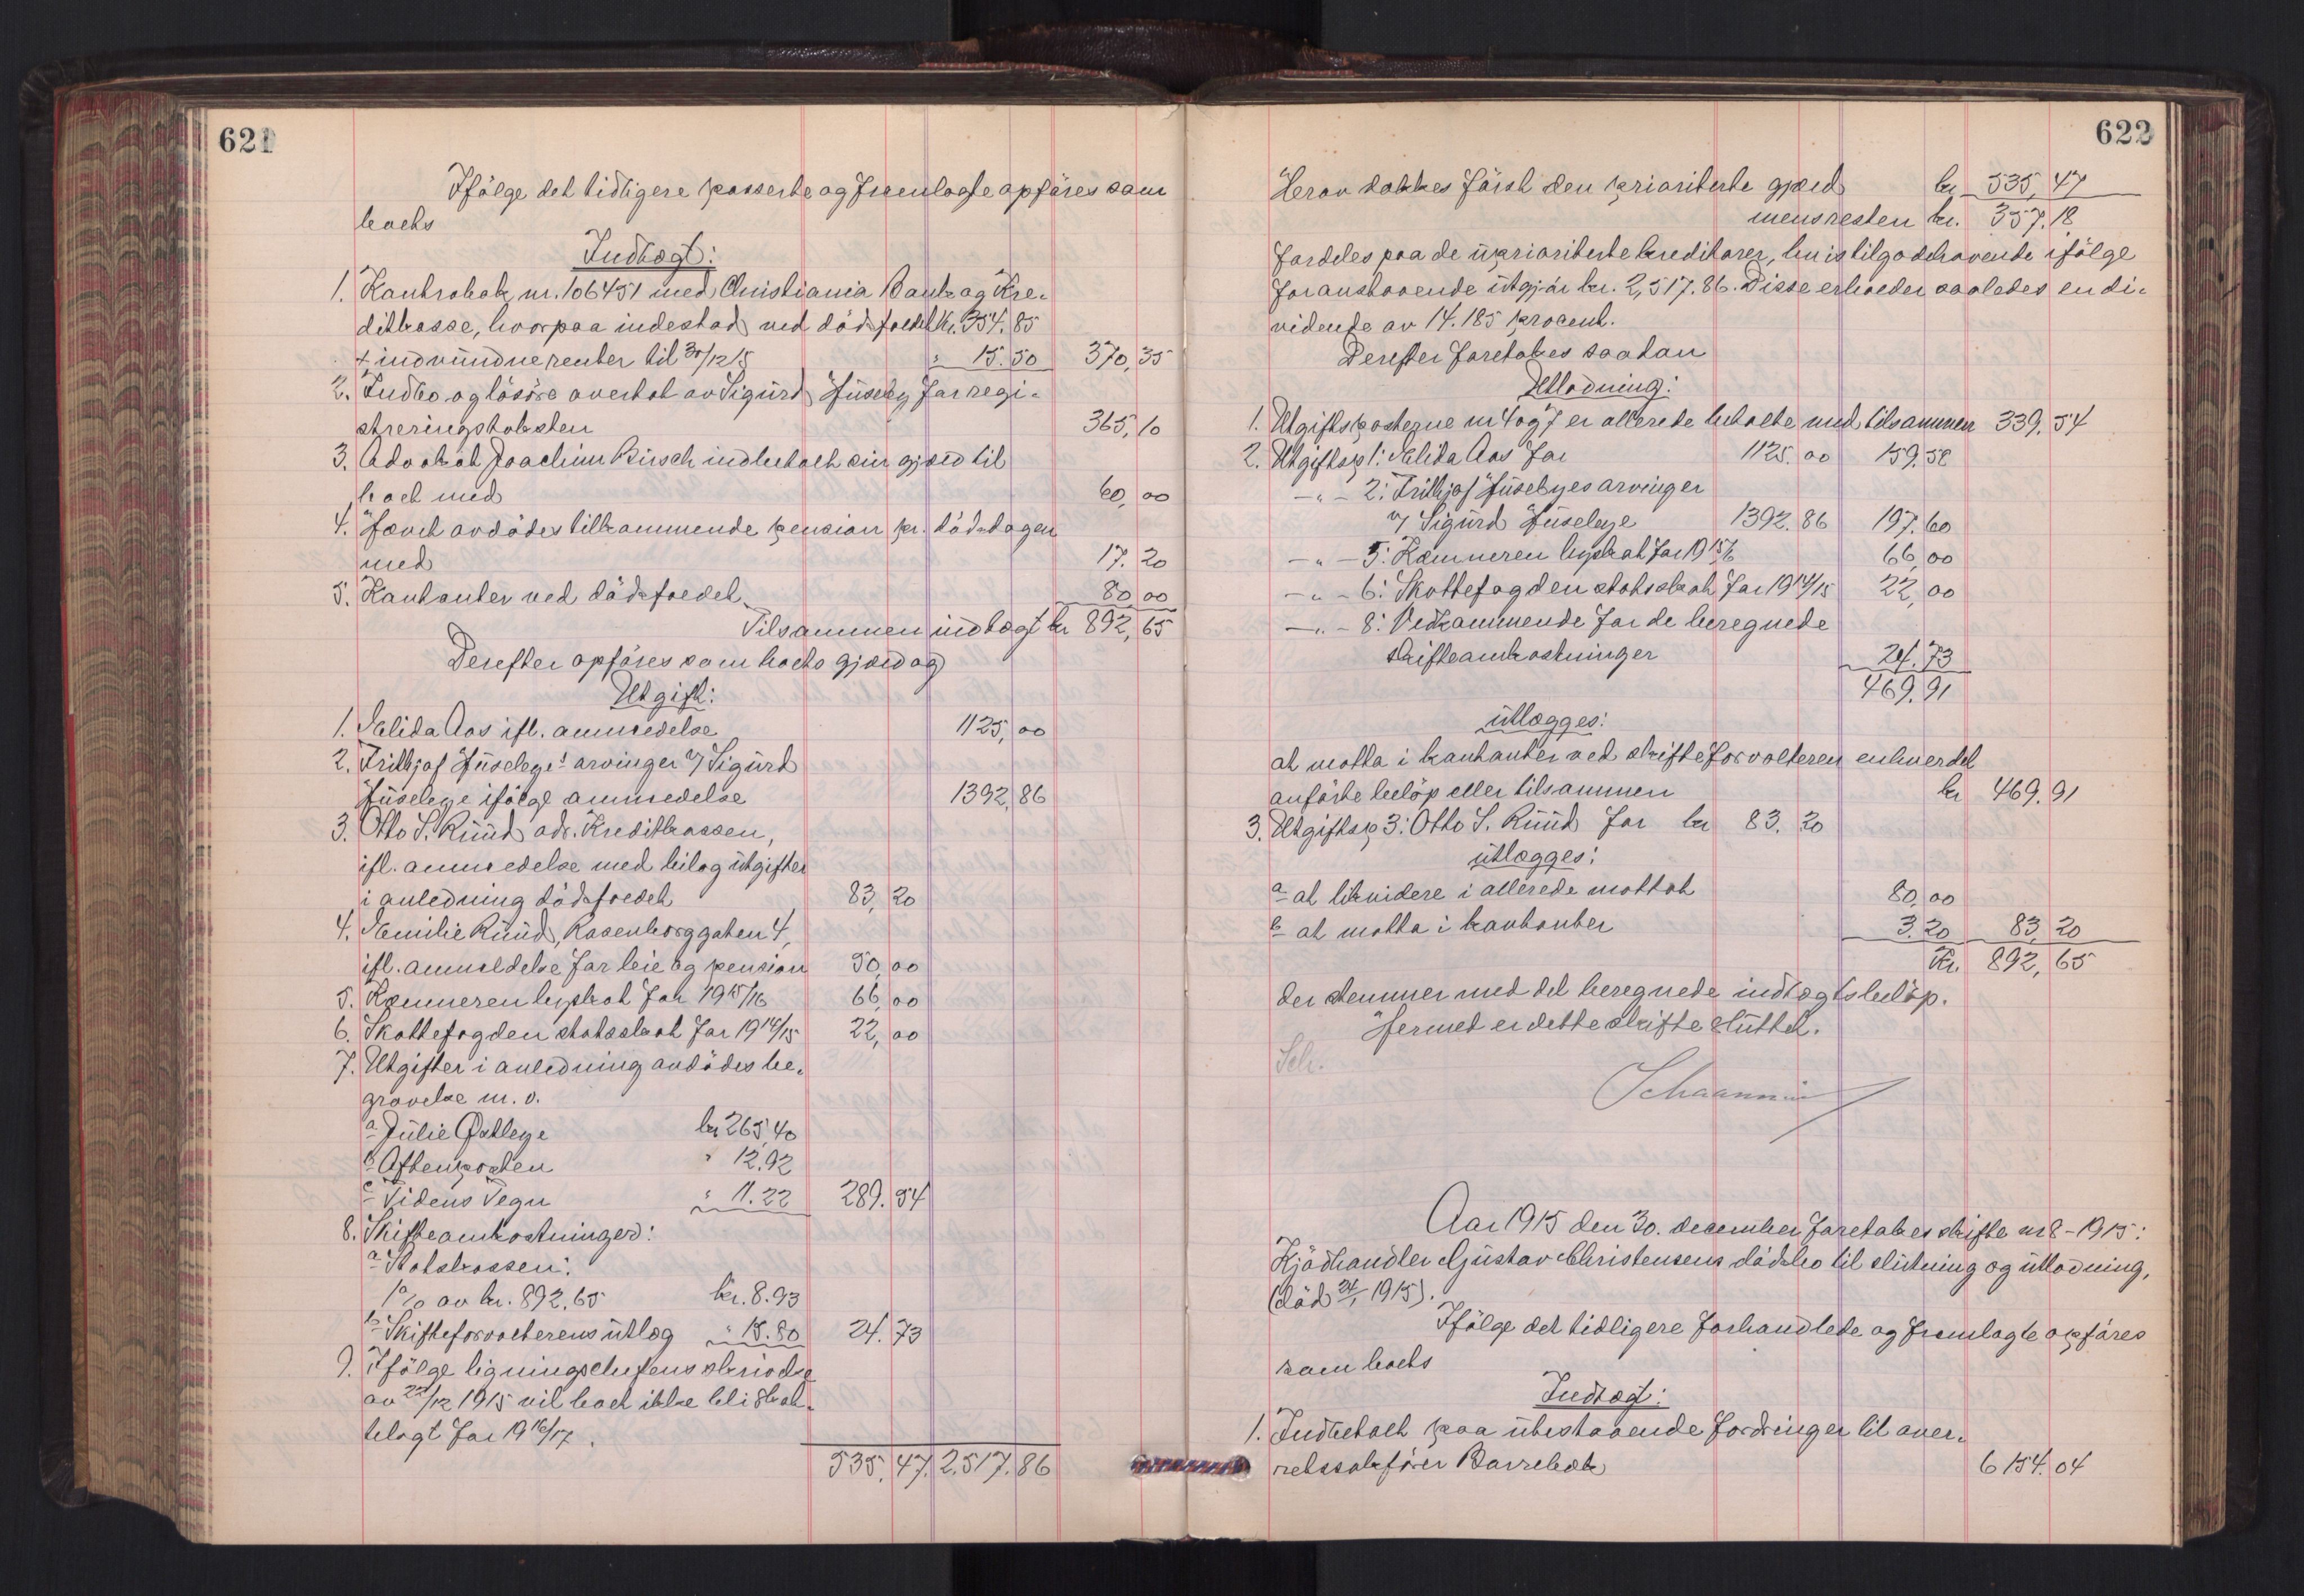 621
Ifölge det tidligere passerte og fremlagte opföres som
boets
Indtægt:
1. Kontrabok nr. 106451 med Christiania Bank og Kre-
ditkasse, hvorpaa indestod ved dödsfaldet kr. 354.85
+ indvundne renter til 30/12 15 " 15.50 370,35
2. Indbo og lösöre overtat av Sigurd Huseby for regi-
streringstaksten 365,10
3. Advokat Joachim Birsch indbetalt sin gjæld til
boet med 60,00
4. Hævet avdödes tilkommende pension pr. dödsdagen
med 17.20
5. Kontanter ved dödsfaldet 80,00
Tilsammen indtægt kr 892,65
Derefter opföres som boets gjæld og
Utgift:
1. Elida Aas ifl. anmeldelse 1125,00
2. Frithjof Huseby's arvinger v/ Sigurd
Husebye ifölge anmeldelse 1392,86
3. Otto S. Ruud adr. Kreditkassen,
ifl. anmeldelse med bilag utgifter
i anledning dödsfaldet 83,20
4. Emilie Ruud, Rosenborggaten 4,
ifl. anmeldelse for leie og pension 50,00
5. Kæmneren byskat for 1915/16 66,00
6. Skattefogden statsskat for 1914/15 22,00
7. Utgifter i anledning avdödes be-
gravelse m. v.
a Julie Østbye kr 265,40
b Aftenposten " 12.92
c Tidens Tegn " 11.22 289.54
8. Skifteomkostninger:
a Statskassen:
1% av kr. 892.65 kr. 8.93
b Skifteforvalterens utlæg " 15.80 24.73
9. Ifölge ligningschefens skrivelse
av 22/12 1915 vil boet ikke bli skat-
telagt for 1916/17.
535,47 2.517.86
622
Herav dækkes først den prioriterte gjæld kr 535,47
mens resten kr. 357.18
fordeles paa de uprioriterte kreditorer, hvis tilgodehavende ifölge
foranstaaende utgjör kr. 2,517.86. Disse erholder saaledes en di-
vidende av 14.185 procent.
Derefter foretokes saadan
Utlodning:
1. Utgiftsposterne nr 4 og 7 er allerede betalte med tilsammen 339.54
2. Utgiftsp 1: Elida Aas for 1125.00 159.58
— " — 2: Frithjof Husebyes arvinger
v/ Sigurd Husebye 1392.86 197.60
— " — 5: Kæmneren byskat for 1915/6 66,00
— " — 6: Skattefogden statsskat for 1914/15 22,00
— " — 8: Vedkommende for de beregnede
skifteomkostninger 24.73
469.91
utlægges:
at motta i kontanter ved skifteforvalteren enhver det
anförte belöp eller tilsammen kr 469.91
3. Utgiftsp 3: Otto S. Ruud for kr 83.20
utlægges:
a at likvidere i allerede mottat 80,00
b at motta i kontanter 3.20 83,20
Kr. 892,65
der stemmer med det beregnede indtægtsbelöp.
Hermed er dette skifte sluttet.
Sch.
Schaanning
Aar 1915 den 30. december foretokes skifte nr 8 - 1915:
Kjödhandler Gustav Christensens dödsbo til slutning og utlodning,
(död 24/1 1915).
Ifölge det tidligere forhandlede og fremlagte opföres
som boets
Indtægt:
1. Indbetalt paa utestaaende fordringer til over-
retssakförer Barrebæk 6154.04